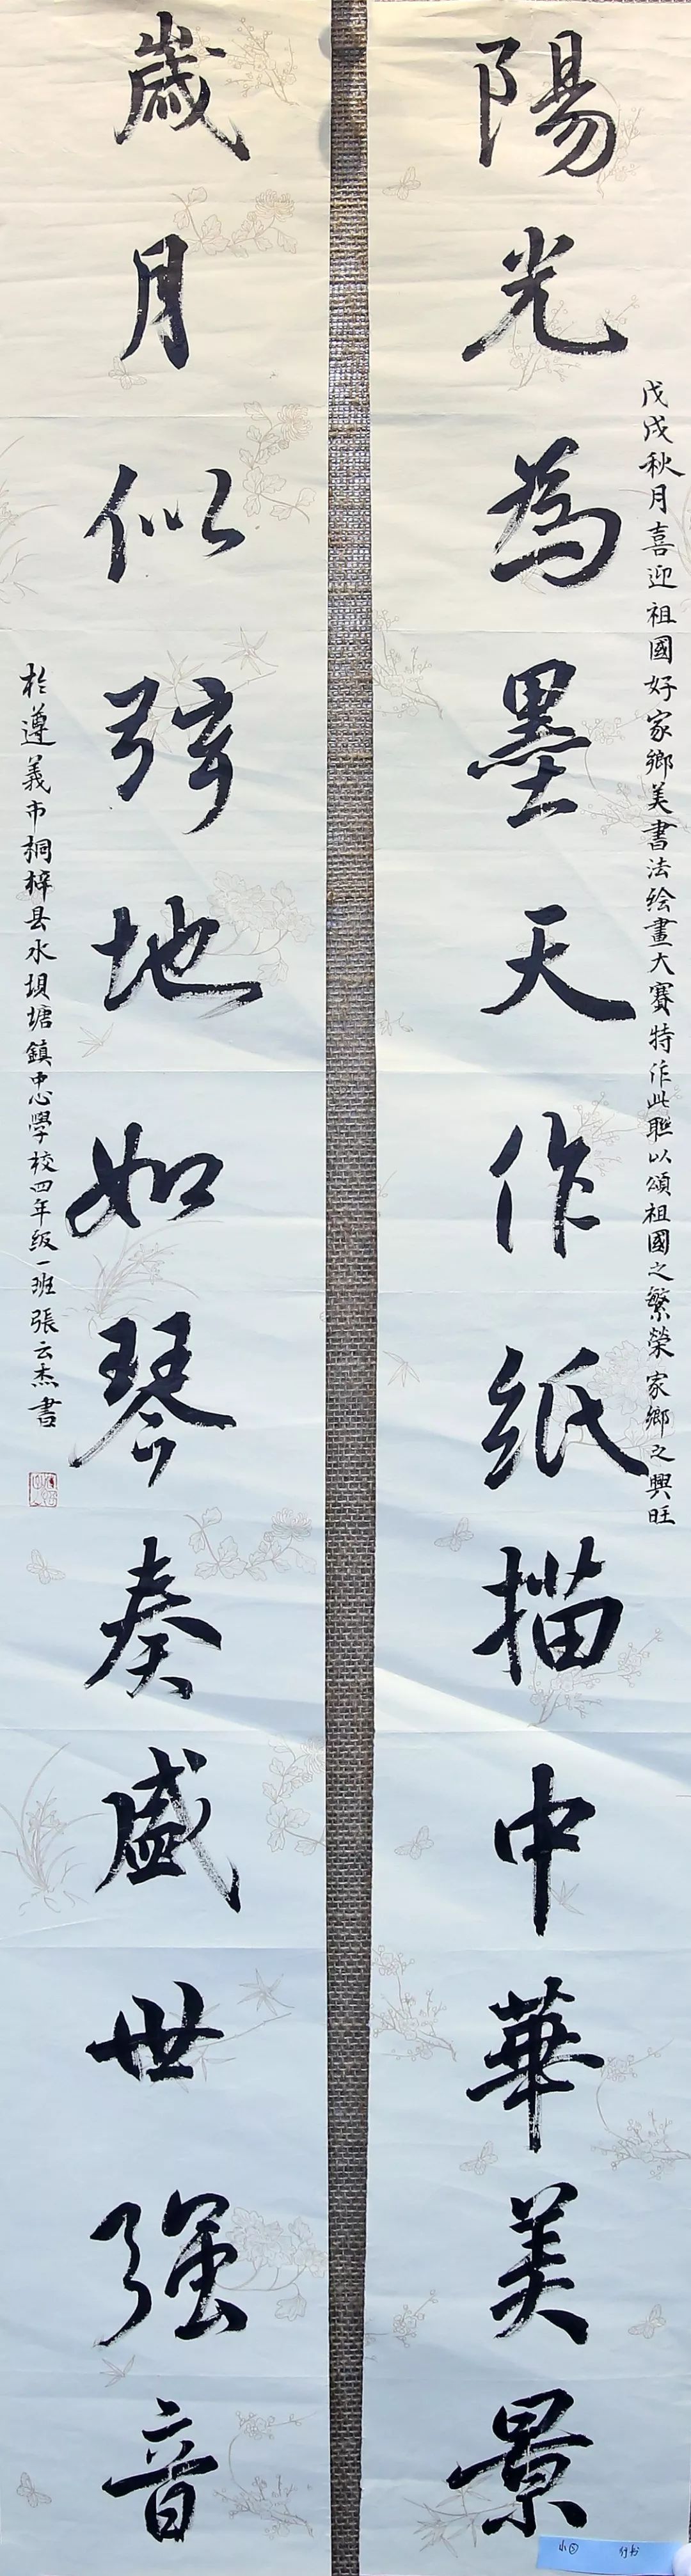 戊戌秋月喜迎祖國好家鄉美書法绘畫大賽特作此聮以頌祖國之繁榮家鄉之興旺
陽光為墨天作纸描中華美景
歲月似弦地如琴奏盛世強音
於遵義市桐梓县水坝塘鎮中心學校四年级一班張云杰書
小⑤ 行书